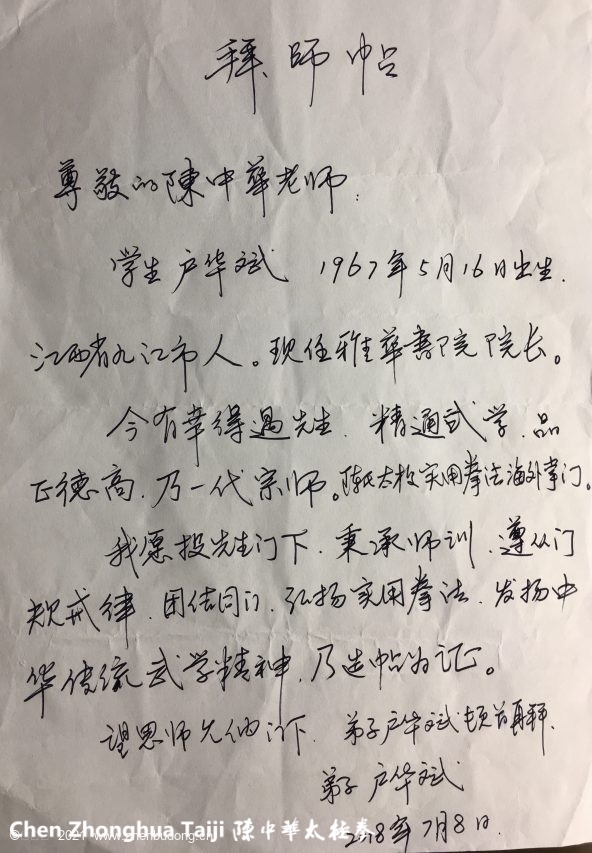 拜师帖
尊敬的陳中華老师:
学生卢华斌 1967年5月16日出生.
江西省九江市人。现任雅華書院院长。
今有幸得遇先生、精通武学、品
正德高、乃一代宗师。陈氏太极实用拳法海外掌门。
我愿投先生门下、秉承师训、遵从门
规戒律、团结同门、弘扬实用拳法、发扬中
华传统武学精神、乃造帖为证。
望恩师允纳门下、弟子卢华斌顿首再拜.
弟子 卢华斌
2018年7月8日.
Chen Zhonghua Taiji 陳中華太极拳
2021 www.zhenbudong.cn